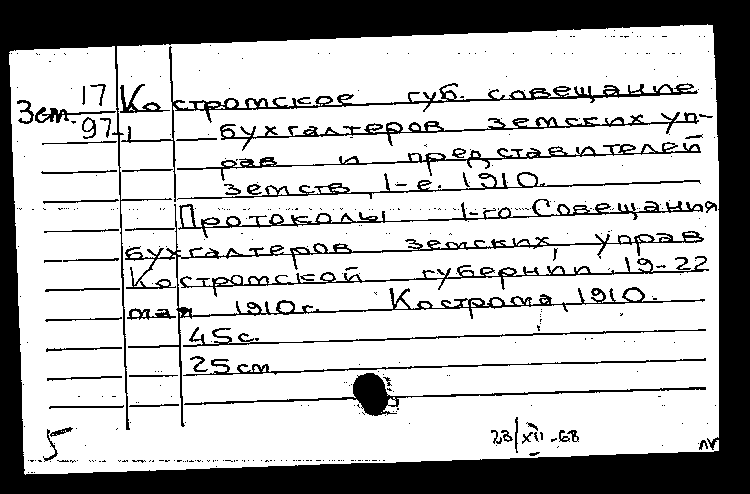 17
Зем. Костромское губ. совещание
97-1 бухгалтеров земских уп-
рав и представителей
земств, 1-е. 1910.
Протоколы 1-го Совещания
бухгалтеров земских управ
Костромской губернии. 19-22
мая 1910г. Кострома, 1910.
45с.
25см.
5 23/XII-68